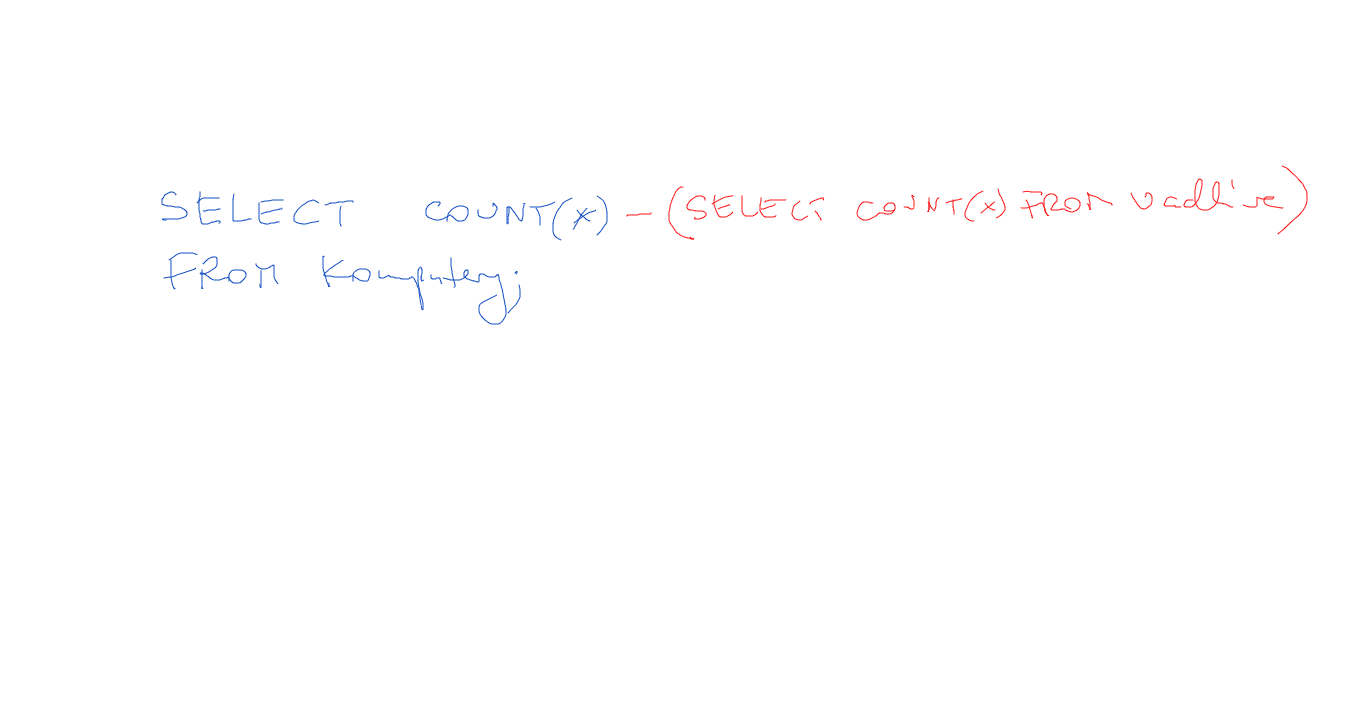 SELECT COUNT(*) - (SELECT COUNT(*) FROM wadliwe)
FROM Komputery;